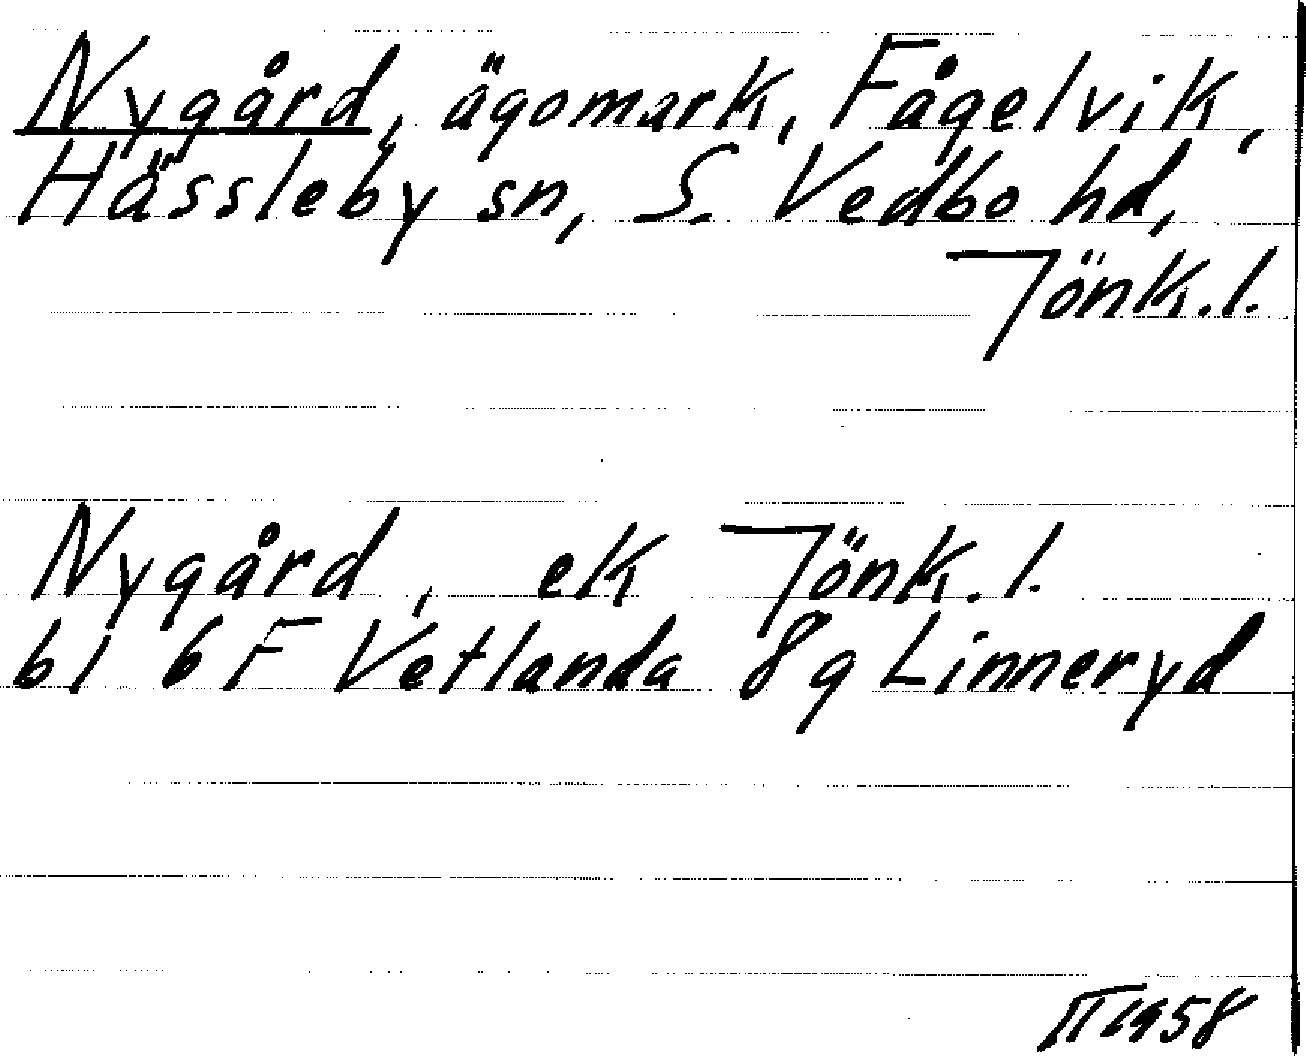 Nygård, ägomark, Fågelvik,
Hässleby sn, S. Vedbo hd,
Jönk.l.
Nygård, ek Jönk.l.
bl 6 F Vetlanda 8g Linneryd
II 1958